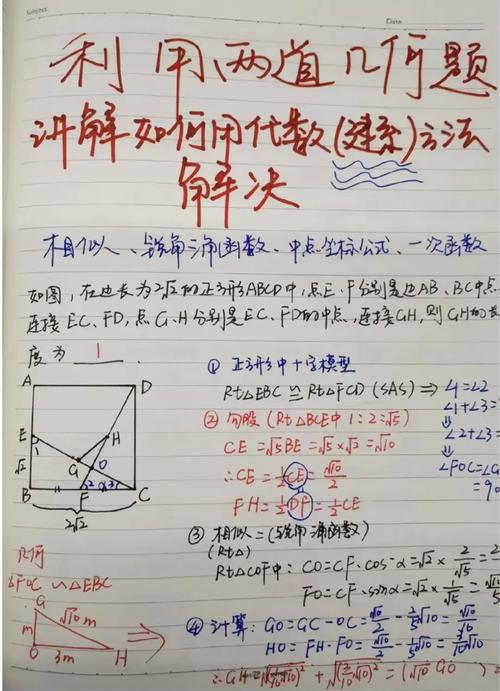 Date
利用两道几何题
讲解如何用代数(建系)方法
解决
相似、锐角三角函数、中点坐标公式、一次函数
如图,在边长为2√2的正方形ABCD中,点E、F分别是边AB、BC中点
连接EC、FD,点G、H分别是EC、FD的中点,连接GH,则GH的长
度为 1
① 正方形中十字模型
Rt△EBC ≌ Rt△FCD (SAS) ⇒ ∠1=∠2
∠1+∠3=
⇓
∠2+∠3=
⇓
∠FOC=∠
=90
② 勾股 (Rt△BCE中 1:2:√5)
CE=√5BE=√5×√2=√10
∴CE=½CE=√10/2
FH=½DF=½CE
③ 相似=(锐角三角函数)
(Rt△)
Rt△COF中: CO=CF·cosα=√2×2/√5=
FO=CF·sinα=√2×1/√5=
④ 计算: GO=GC-OC=√10/2-2/5√10=√10/10
HO=FH-FO=√10/2-1/5√10=3/10√10
∴GH=√(√10/10)²+(3/10√10)²=(√10 GO)
A
D
E
1
H
G
O
√2
B
F
2
3
C
2√2
几何
△FOC ∽ △EBC
G
√10 m
m
O
3m
H